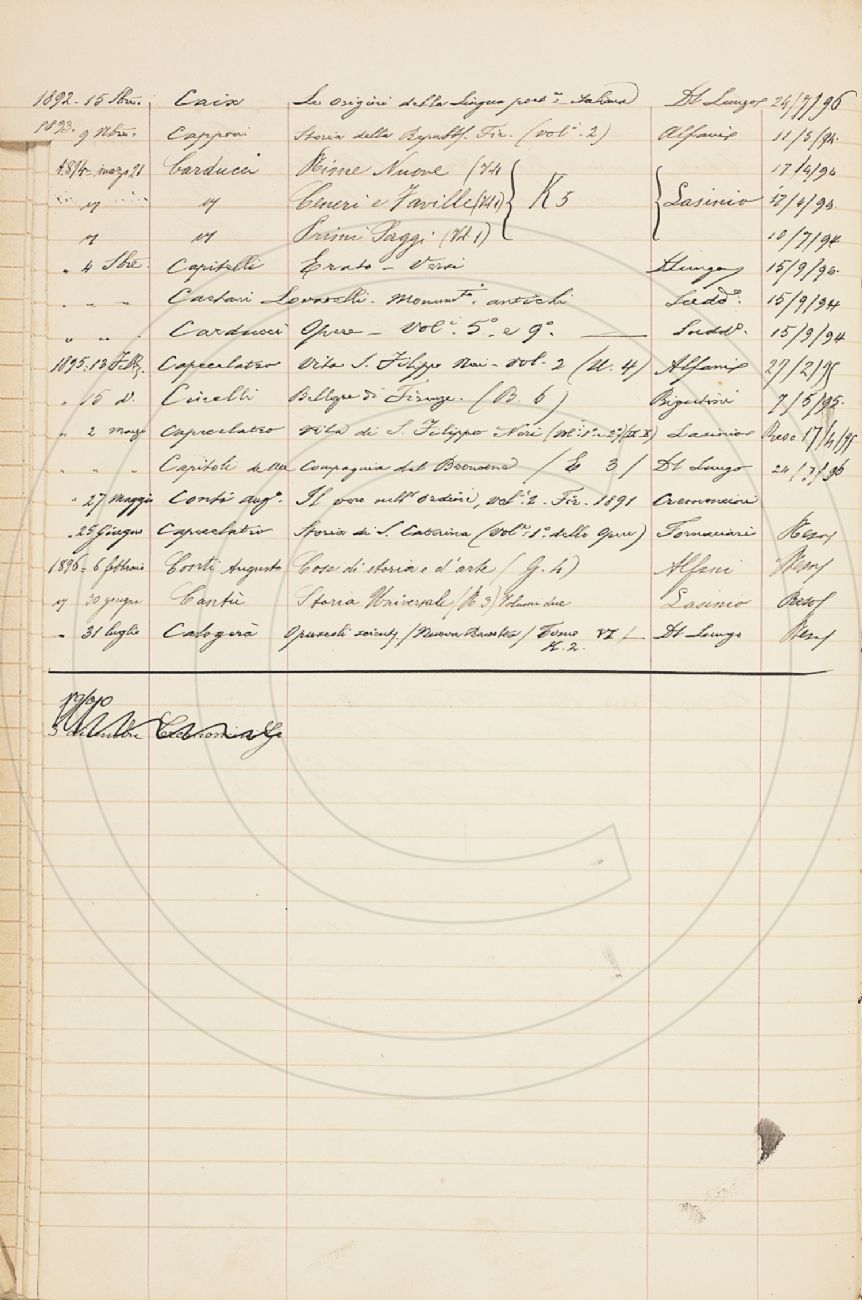 1892. 15 Sbre. Caix Le origini della lingua poet.ª italiana Del Lungo 24/7/96
1893. 9 Nbre. Capponi Storia della Repubb. Fir. (vol.º 2) Alfani 11/5/94.
1894 - marzo 21 Carducci Rime Nuove (Vol. 17/4/94
" " " Ceneri e Faville (Vol 1) K 5 Lasinio 17/4/94
" " Primi Saggi (Vol 1) 10/7/94
" 4 Sbre. Capitelli Erato - Versi D Lungo 15/9/94.
" " " Caetani Lovatelli - Monum.ti antichi 15/9/94
" " " Carducci Opere - Vol.i 5º e 9º. 15/9/94
1895. 13 Febb. Capecelatro Vita S. Filippo Neri - vol. 2 (U. 4) Alfani 27/2/95
" 15 d.º Cinelli Bellezze di Firenze. (B. 6) Rigutini 7/5/95.
" 2 marzo Capecelatro Vita di S. Filippo Neri Lasinio Reso 17/4/95
" " " Capitoli della Compagnia del Broncone / E 3 / Del Lungo 24/7/96
" 27 Maggio Conti Aug.º Il vero nell'ordine, vol.i 2 - Fir. 1891
" 25 Giugno Capecelatro Storia di S. Caterina (vol.º 1º delle Opere) Fornaciari Reso
1896 - 6 febbraio Conti Augusto Cose di storia e d'arte (G. 4) Alfani Reso
" 30 giugno Cantù Storia Universale (K 3) Volumi due Lasinio Reso
" 31 luglio Calogerà Opuscoli scientif. / Nuova Raccolta / Tomo VI / Del Lungo Reso
K. 2.